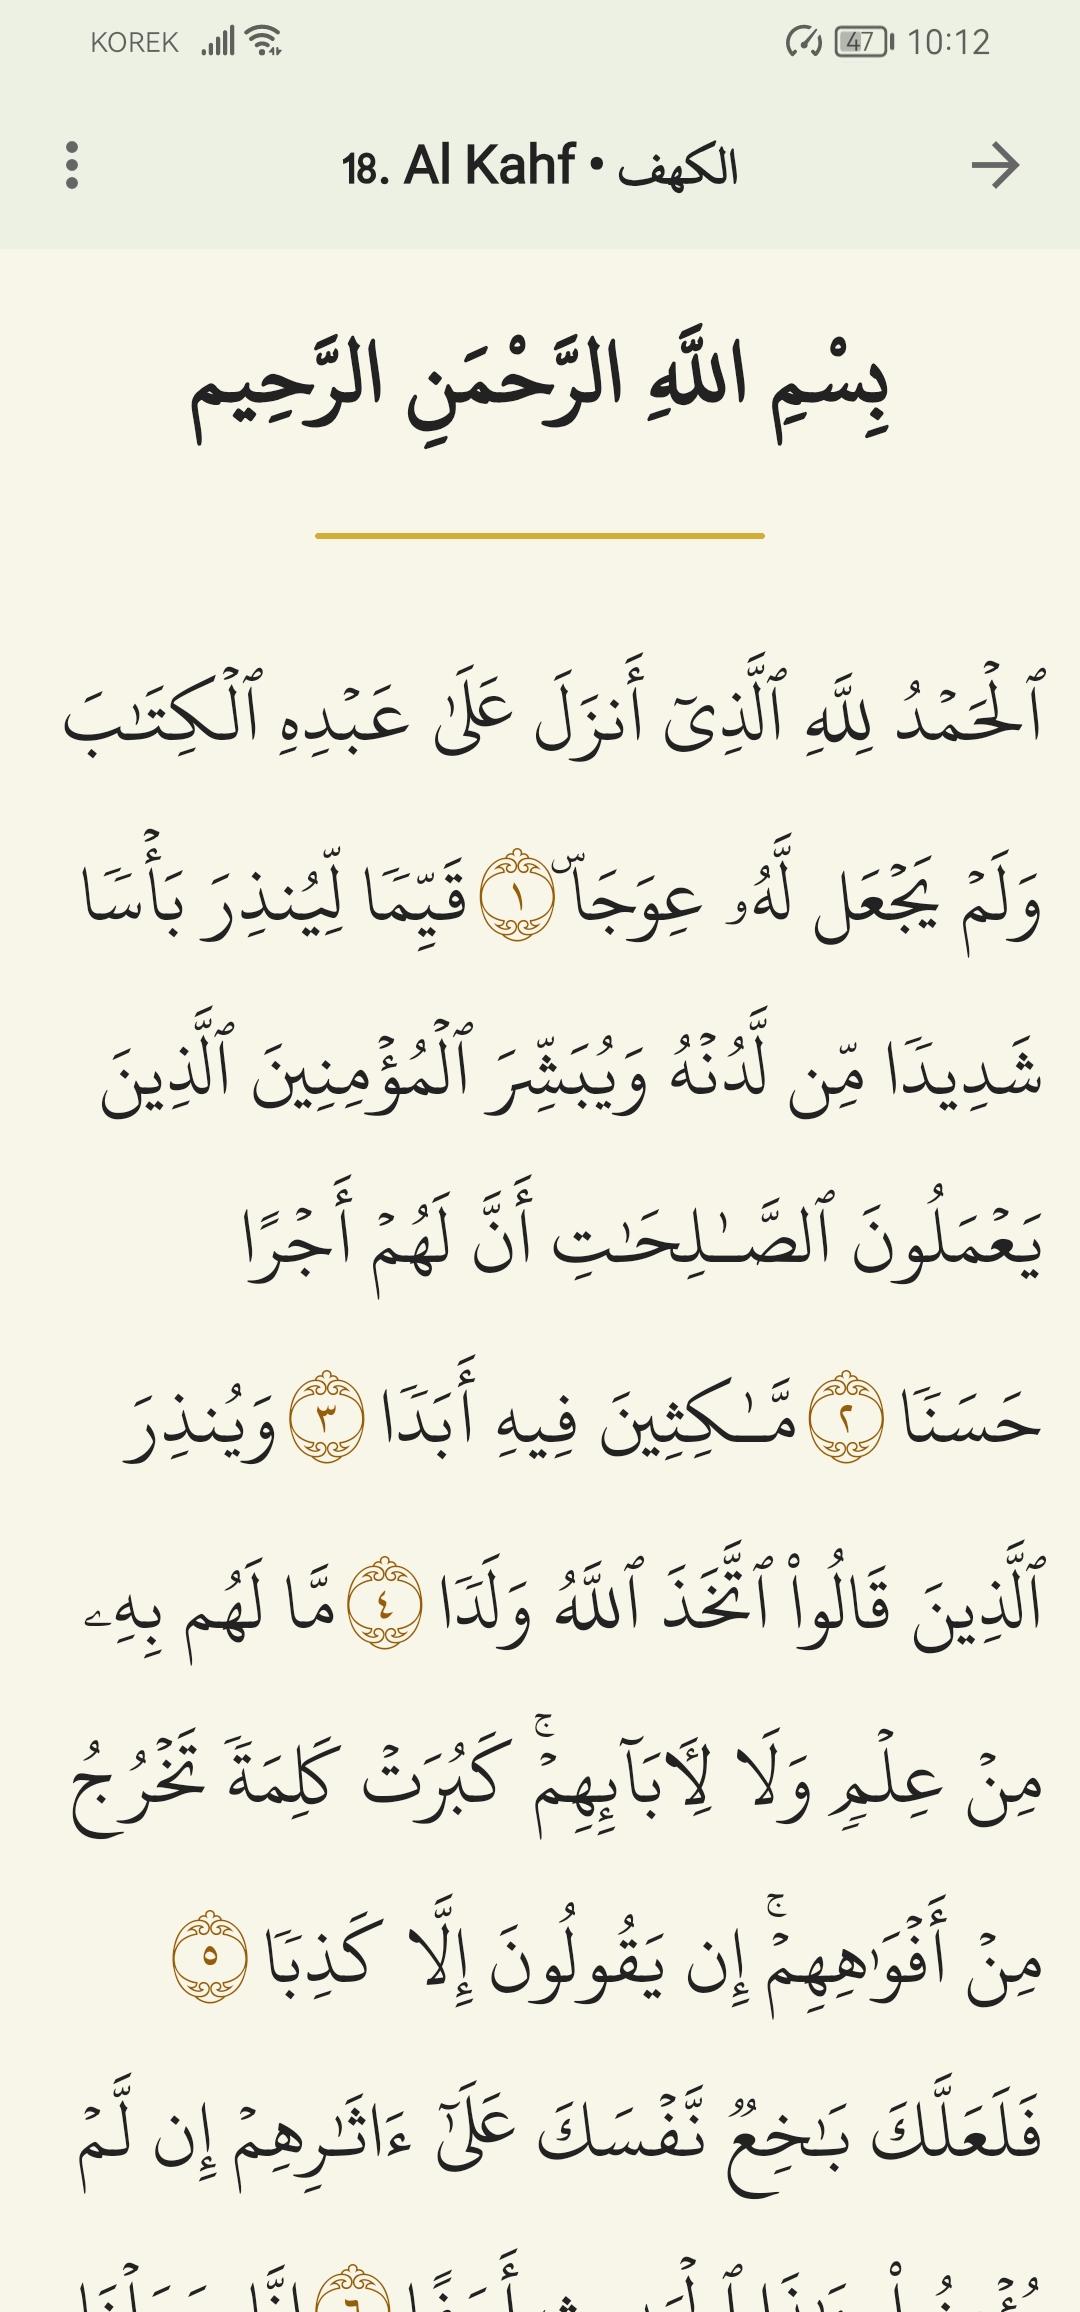 KOREK 47 10:12
18. Al Kahf • الكهف
بِسْمِ اللَّهِ الرَّحْمَنِ الرَّحِيم
ٱلْحَمْدُ لِلَّهِ ٱلَّذِىٓ أَنزَلَ عَلَىٰ عَبْدِهِ ٱلْكِتَـٰبَ
وَلَمْ يَجْعَل لَّهُۥ عِوَجَاۜ ١ قَيِّمًا لِّيُنذِرَ بَأْسًا
شَدِيدًا مِّن لَّدُنْهُ وَيُبَشِّرَ ٱلْمُؤْمِنِينَ ٱلَّذِينَ
يَعْمَلُونَ ٱلصَّـٰلِحَـٰتِ أَنَّ لَهُمْ أَجْرًا
حَسَنًا ٢ مَّـٰكِثِينَ فِيهِ أَبَدًا ٣ وَيُنذِرَ
ٱلَّذِينَ قَالُوا۟ ٱتَّخَذَ ٱللَّهُ وَلَدًا ٤ مَّا لَهُم بِهِۦ
مِنْ عِلْمٍ وَلَا لِـَٔابَآئِهِمْ ۚ كَبُرَتْ كَلِمَةً تَخْرُجُ
مِنْ أَفْوَٰهِهِمْ ۚ إِن يَقُولُونَ إِلَّا كَذِبًا ٥
فَلَعَلَّكَ بَـٰخِعٌ نَّفْسَكَ عَلَىٰٓ ءَاثَـٰرِهِمْ إِن لَّمْ